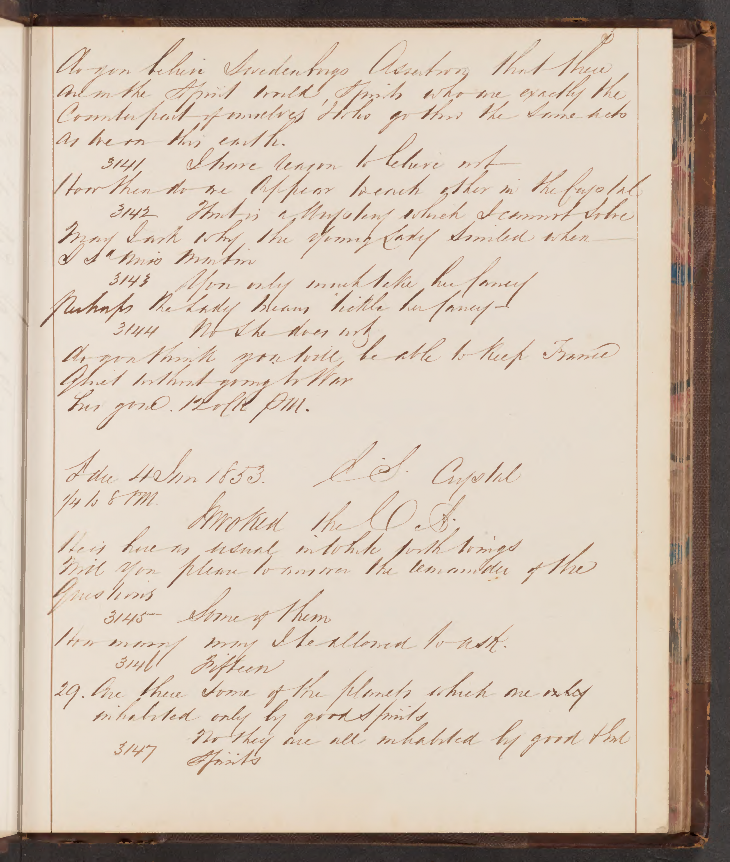 Do you believe Swedenborgs Assertion that there
are in the Spirit world Spirits who are exactly the
Counterpart of ourselves & who go thro the same acts
as we on this earth.
3141 I have reason to believe not
How then do we Appear to each other in the Crystal
3142 That is a Mystery which I cannot solve
May I ask why the Young Lady smiled when
I
3143 You only much take her fancy
Perhaps the Lady means tickle her fancy
3144 No she does not
Do you think you will be able to keep France
Quiet without going to War
has gone. 12 oclk PM.
Tdw 4 Jan 1853. C. S. Crystal
1/4 to 8 PM.
Invoked the C A.
He is here as usual in white with wings
Will you please to answer the remainder of the
Questions
3145 Some of them
How many may I be allowed to ask.
3146 Fifteen
29. Are there some of the planets which are only
inhabited only by good spirits
3147 No they are all inhabited by good & bad
Spirits